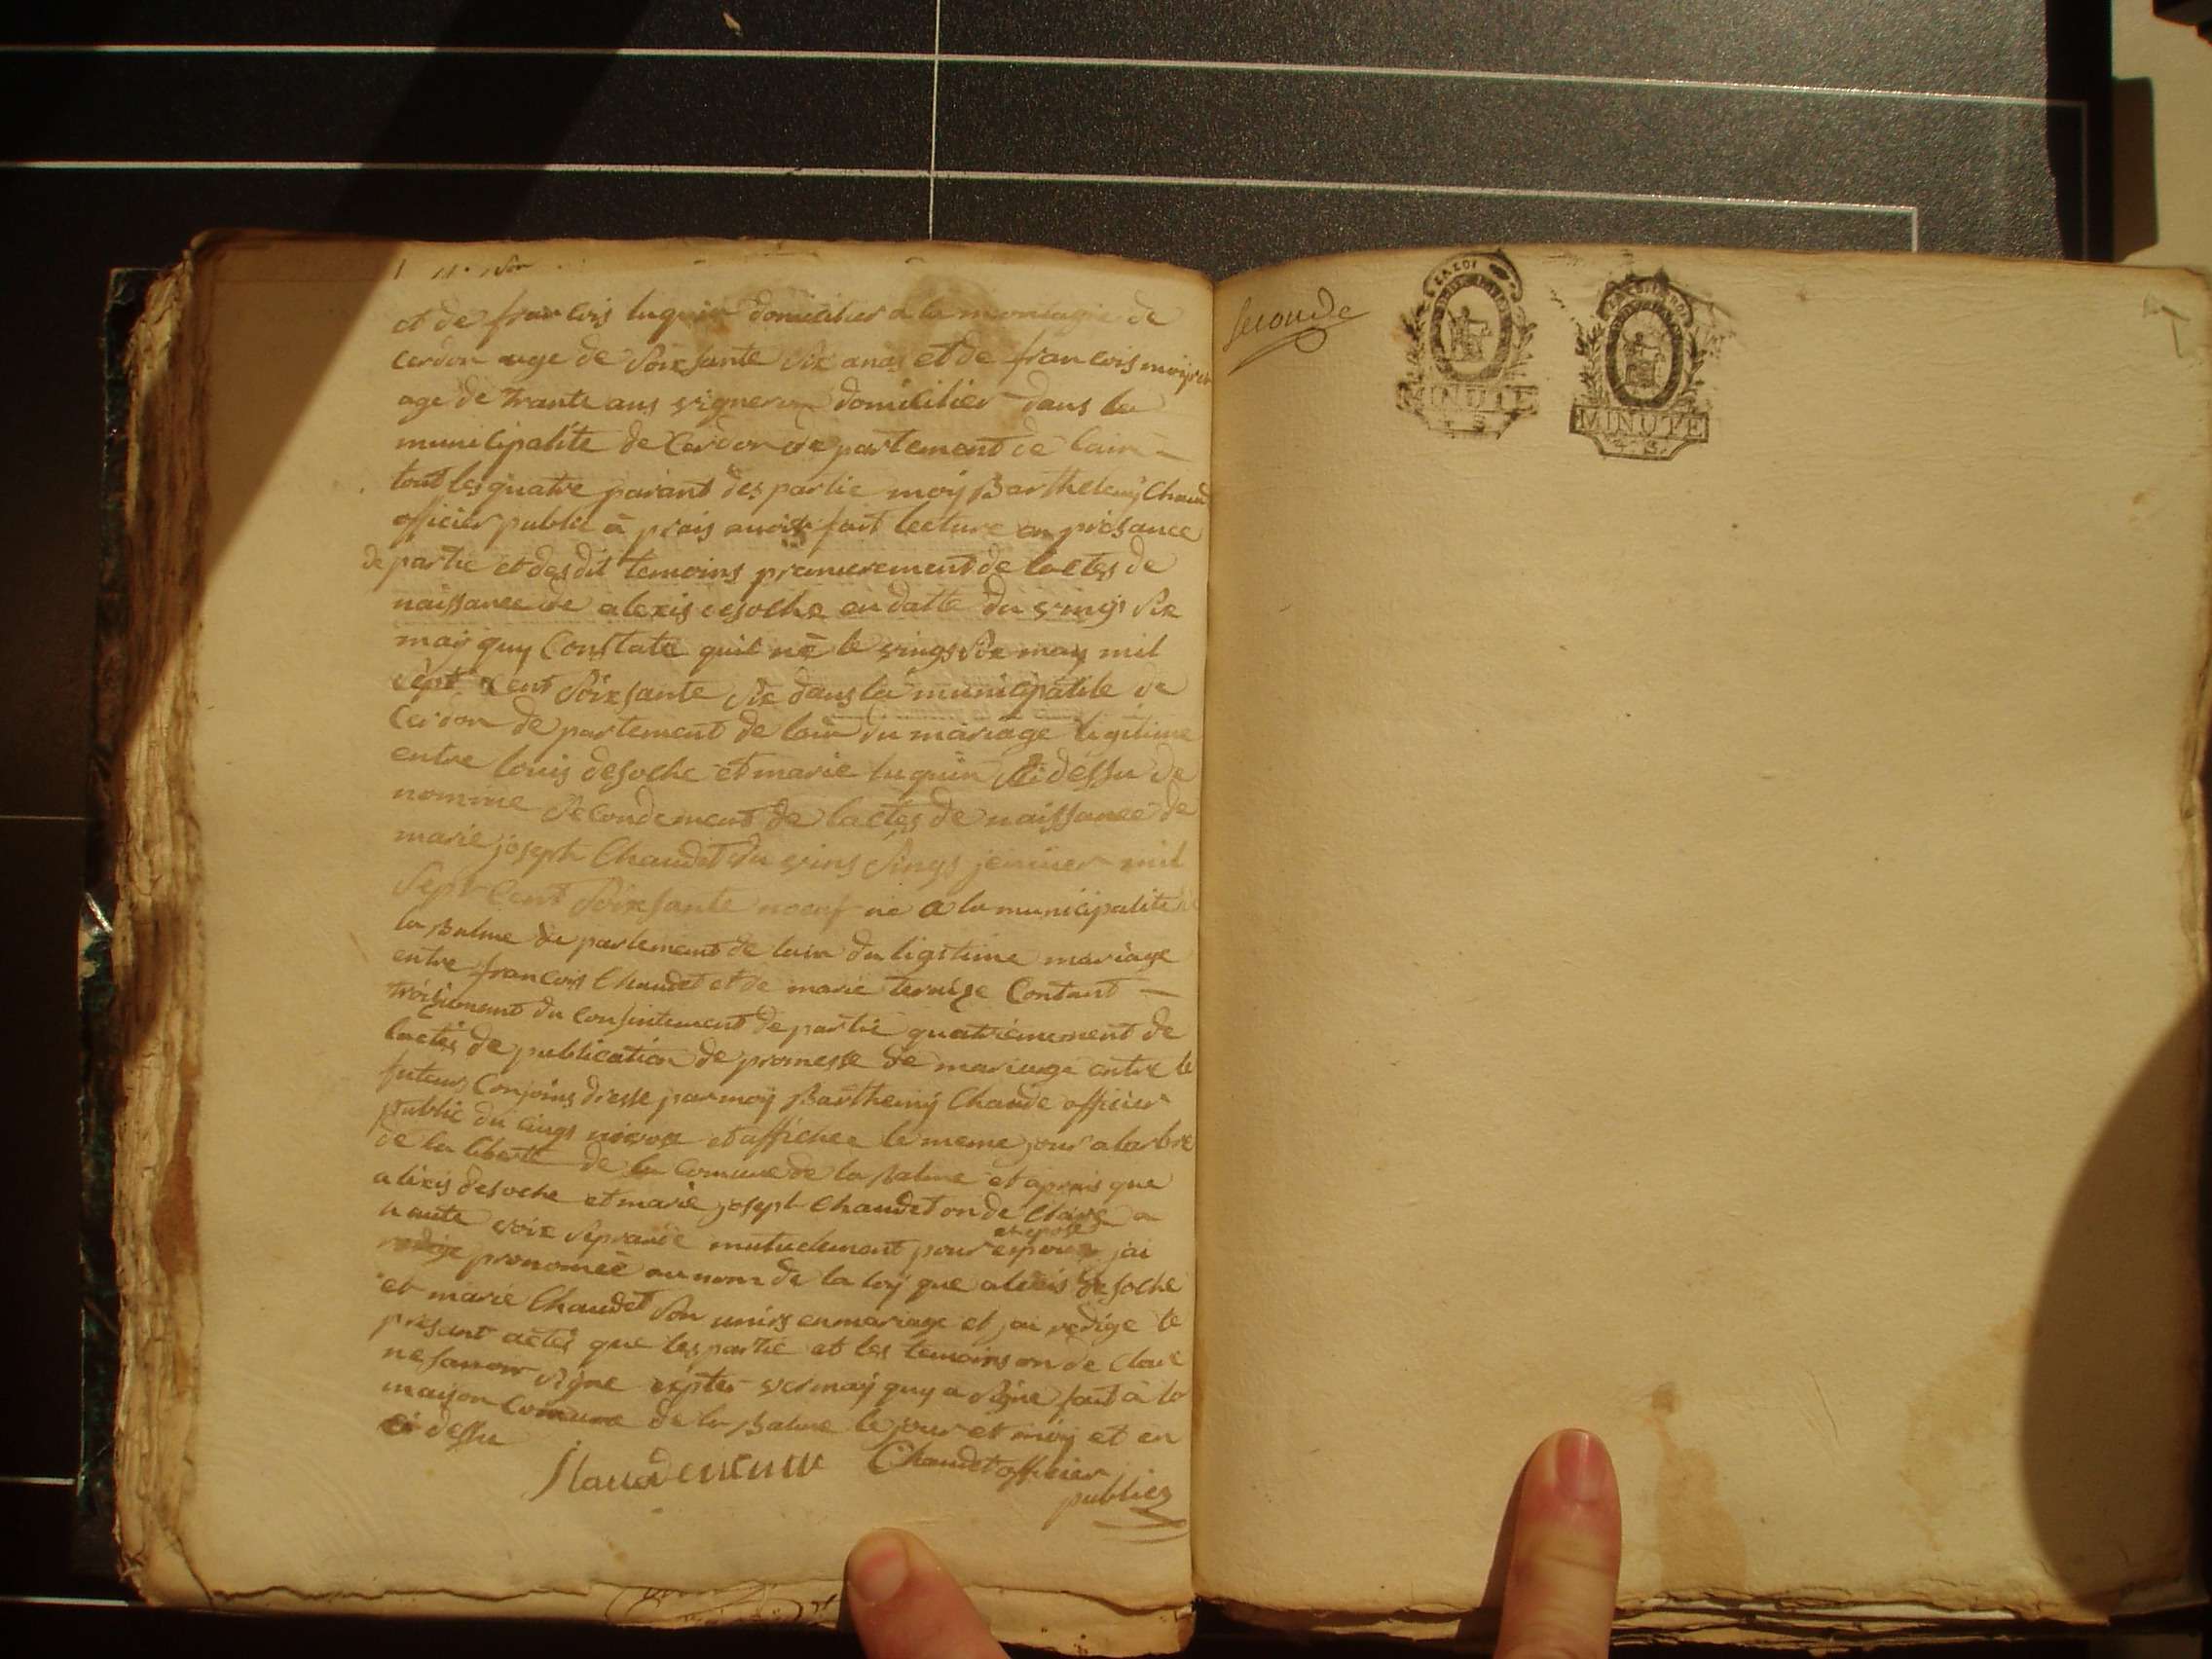 et de francois luquin domicilier a la montagne de
cerdon age de soixsante six anas et de francois
age de trante ans vigneron domicilier dans la
municipalite de Cerdon de partement de lain
tout les quatre parant des partie moy Barthelemy Chaud
officier public à prais avoir fait lecture en presance
de partie et des dit temoins premierement de lactes de
naissance de alexis desoche en datte du vings six
may quy Constate quil né le vings six may mil
sept cent soixsante six dans la municipalite de
Cerdon de partement de lain du mariage legitime
entre louis desoche et marie luquin ci dessu de
nomme secondement de lactes de naissance de
marie joseph Chaudet du vins sings jenvier mil
sept Cent soixsante noeuf né a la municipalite
la Balme de partement de lain du ligitime mariage
entre francois Chaudet et de marie Contant
troisiement du Consintement de partie quatriemement de
lactes de publication de promesse de mariage entre le
futeur Conjoins dresse par moy Barthemy Chaude officier
public du cings nivose et affichee le meme jour a larbre
de la liberte de la Comune de la Balme et aprais que
alixis desoche et marie joseph Chaudet on de Clare a
aute voix se prande mutuelement pour espoux et epose jai
pronomée au nom de la loy que alexis desoche
et marie Chaudet son unirs en mariage et jai redige le
presant actes que les partie et les temoins on de Clare
ne savoir signe exsptes vernay quy a signe fait à la
maison Comune de la Balme le jour et moy et en
ci dessu
Chaudet officier
public
seconde
LA LOI
MINUTE
MINUTE
4. S.